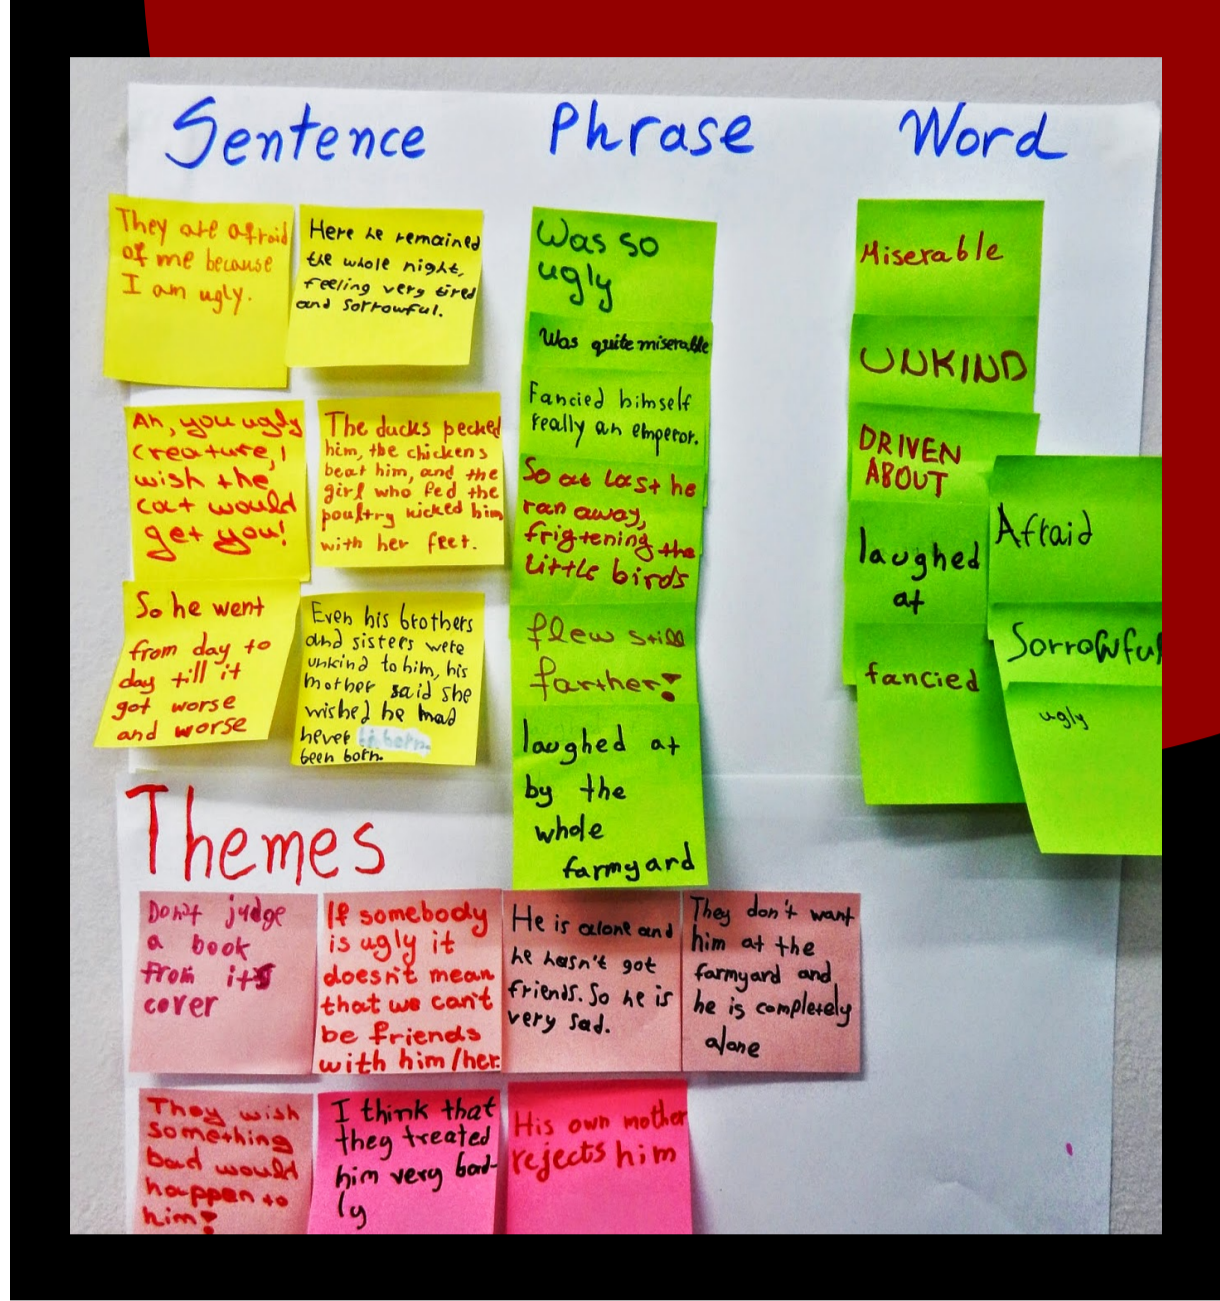 Sentence
They are afraid
of me because
I am ugly.
Here he remained
the whole night,
feeling very tired
and sorrowful.
Ah, you ugly
creature, I
wish the
cat would
get you!
The ducks pecked
him, the chickens
beat him, and the
girl who fed the
poultry kicked him
with her feet.
So he went
from day to
day till it
got worse
and worse
Even his brothers
and sisters were
unkind to him, his
mother said she
wished he had
never
been born.
Phrase
Was so
ugly
Was quite miserable
Fancied himself
really an emperor.
So at last he
ran away,
frigtening the
little birds
flew still
farther!
laughed at
by the
whole
farmyard
Word
Miserable
UNKIND
DRIVEN
ABOUT
laughed
at
fancied
Afraid
Sorrowful
ugly
Themes
Don't judge
a book
from it's
cover
If somebody
is ugly it
doesn't mean
that we can't
be friends
with him/her.
He is alone and
he hasn't got
friends. So he is
very sad.
They don't want
him at the
farmyard and
he is completely
alone
They wish
something
bad would
happen to
him!
I think that
they treated
him very bad-
ly
His own mother
rejects him